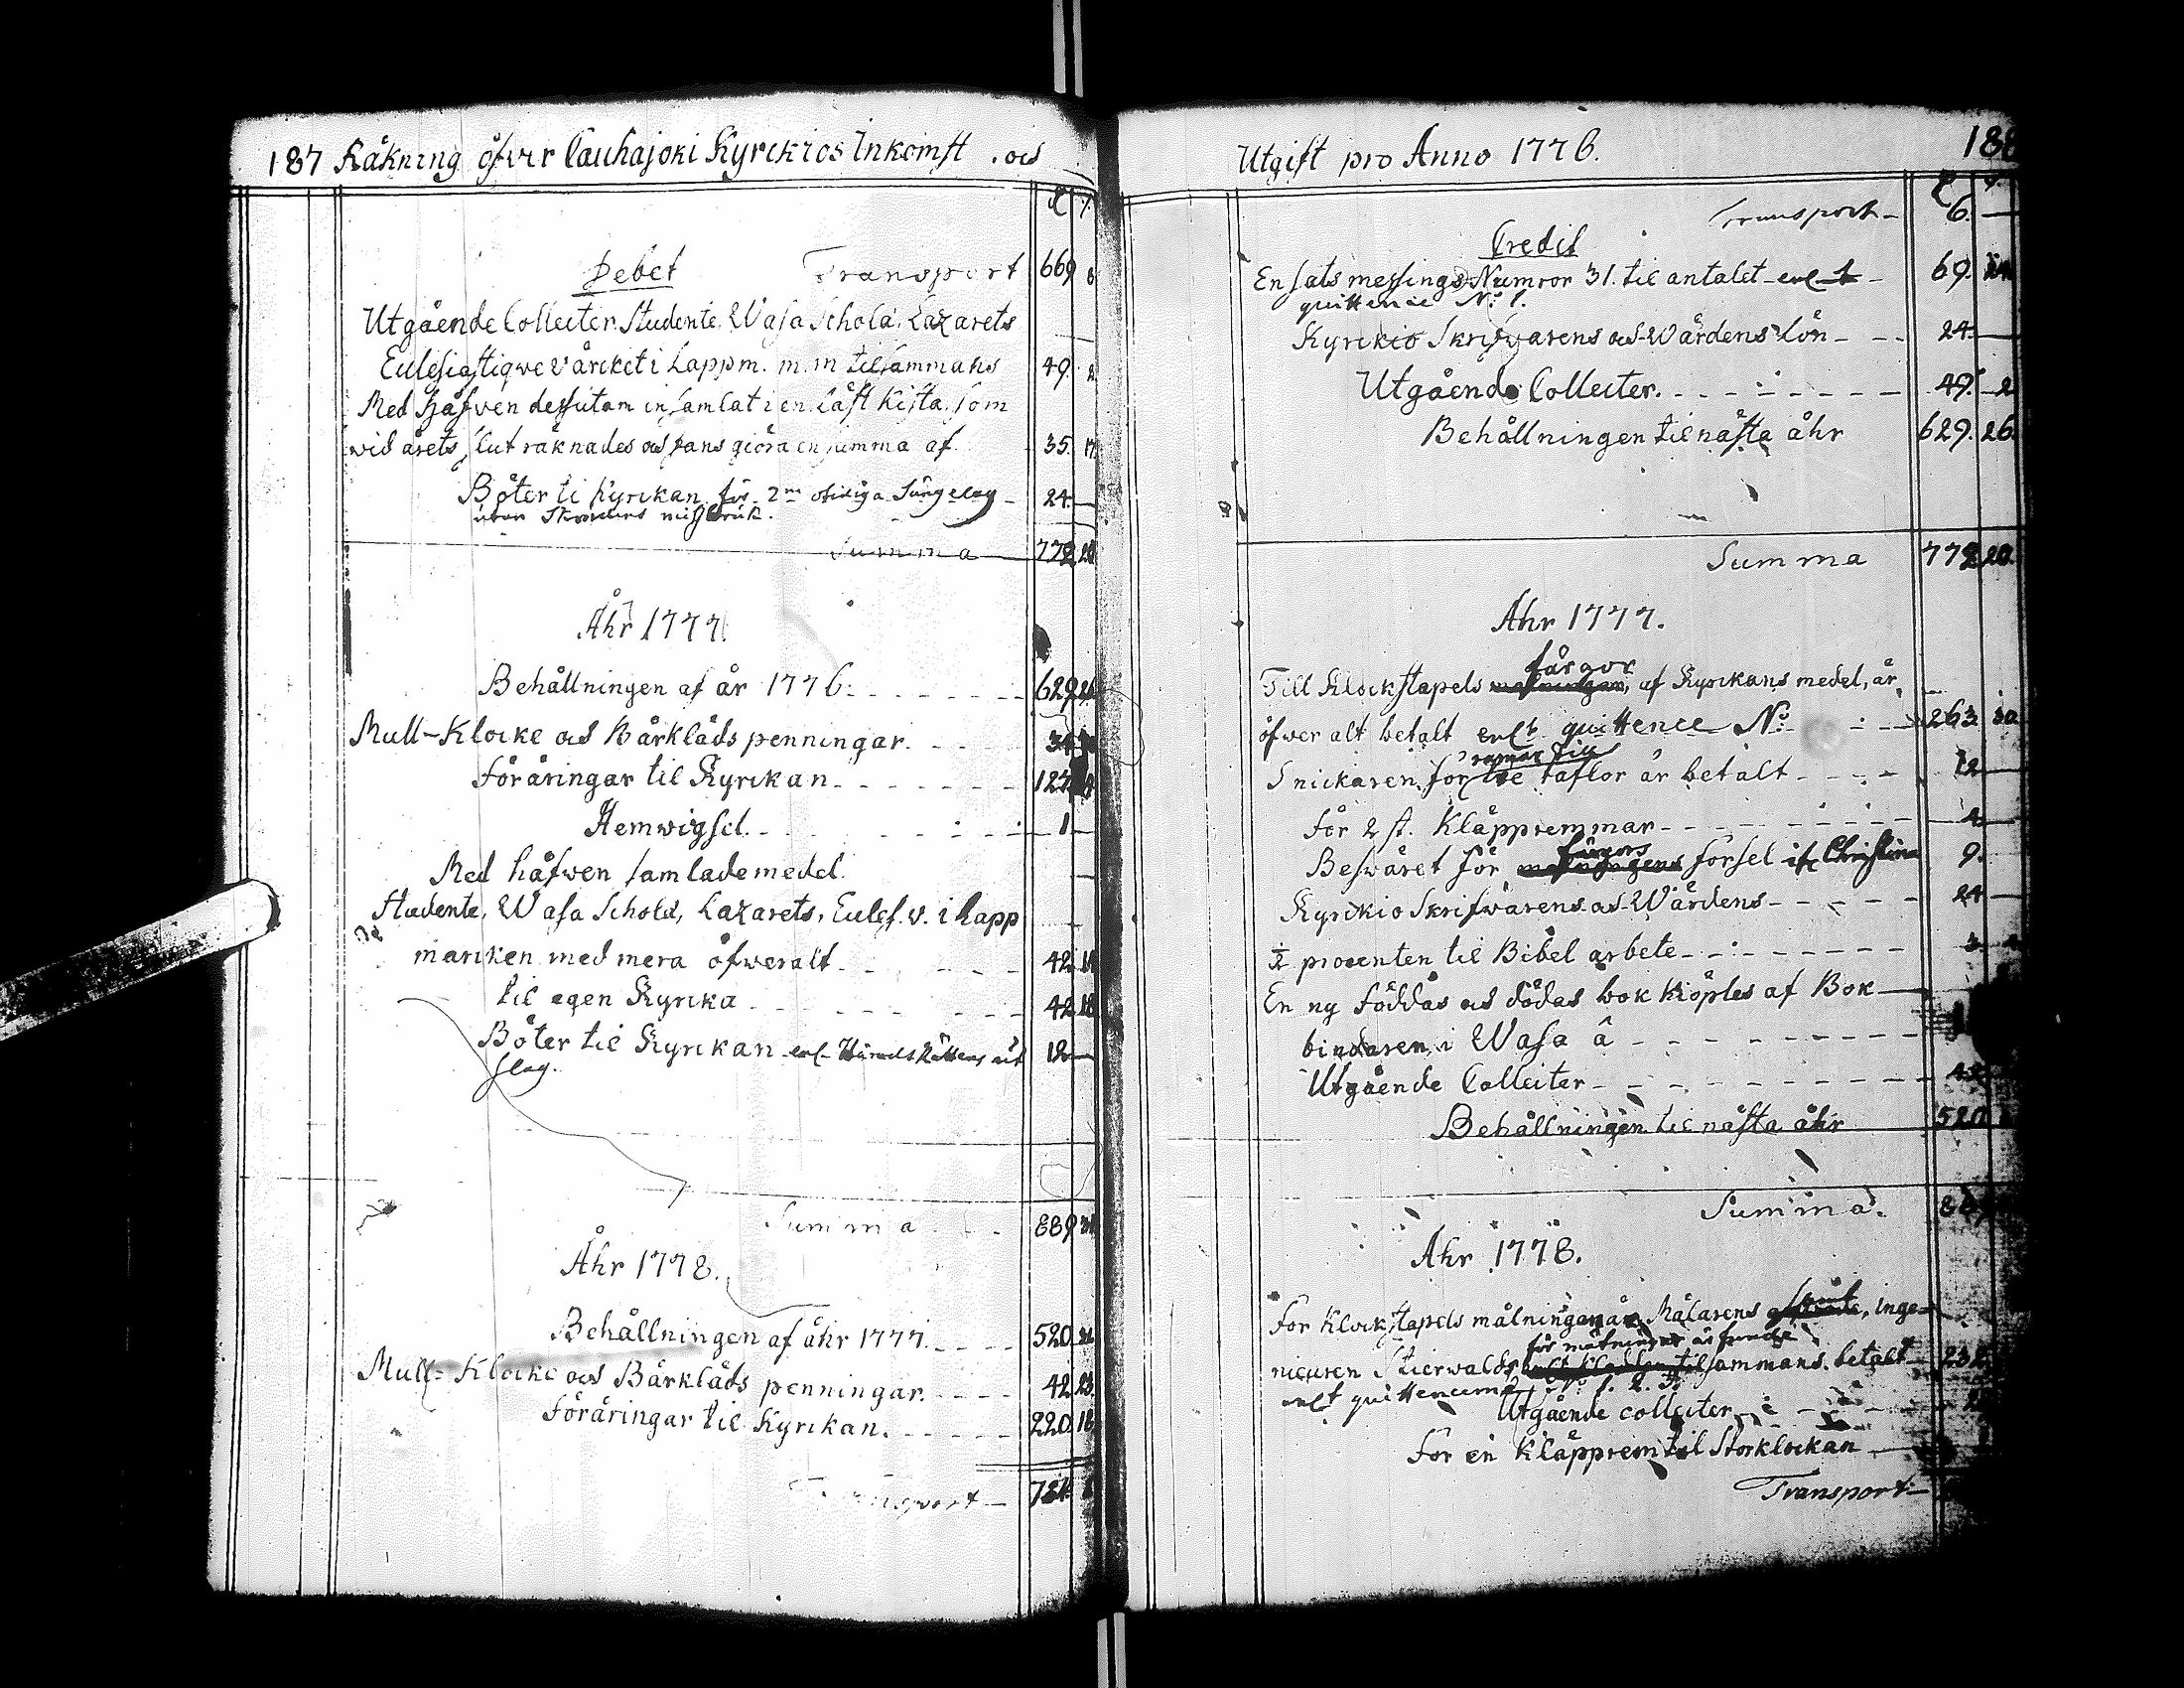 187 Räkning öfver Lauhajoki Kyrckios Inkomst och
Debet Transport 669 8
Utgående Collecter Studente, Wasa Schola, Lazarets
Ecclesiastiqve värcket i Lappm. m.m tilsammans 49. 2
Med Håfven dessutom insamlat i en låst Kista, som
wid årets slut räknades och fans giöra en summa af 35. 17
Böter til Kyrckan för 2ne
24.
Summa 772 20
Åhr 1777.
Behållningen af år 1776. 629 26
Mull-Klocke och Bårkläds penningar. 34
föräringar til Kyrckan 127
Hemwigsel. 1
Med håfwen samlade medel.
Studente, Wasa Schola, Lazarets, Eclef. v. i Lapp
marcken med mera öfweralt 42
til egen Kyrcka 42 18
Böter til Kyrckan enl. Härads Rättens ut 12
slag.
Summa 889
Åhr 1778.
Behållningen af åhr 1777. 520
Mull-Klocke och Bårkläds penningar. 42 23
föräringar til Kyrckan. 220 16
Transport 784
Utgift pro Anno 1776. 188
Transport 6.
Credit
En sats messings Numror 31. til antalet enl. 69.
quittence No. 1.
Kyrckio Skrifwarens och Wärdens lön 24.
Utgående Collecter. 49. 2
Behållningen til nästa åhr 629. 26
Summa 772 20.
Åhr 1777.
färgor
Till Klockstapels af Kyrckans medel, är
öfwer alt betalt enlt quittence No. 263
ramar till
Snickaren för taflor är betalt 12
för 2 st. Kläppremmar
färgors
Beswäret för försel ifr. Christina 9.
Kyrckio Skrifwarens och Wärdens 24
½ procenten til Bibel arbete 3
En ny föddas och dödas bok kiöptes af Bok
bindaren i Wasa â
Utgående Collecter 42
Behållningen til nästa åhr 520
Summa.
Åhr 1778.
För Klockstapels målningen Målarens inge
för målningar
nieuren Stierwalds tilsammans betalt 232
enlt quittencerne No. 1. 2. 3.
Utgående collecter
För en Kläpprem til Storklockan
Transport